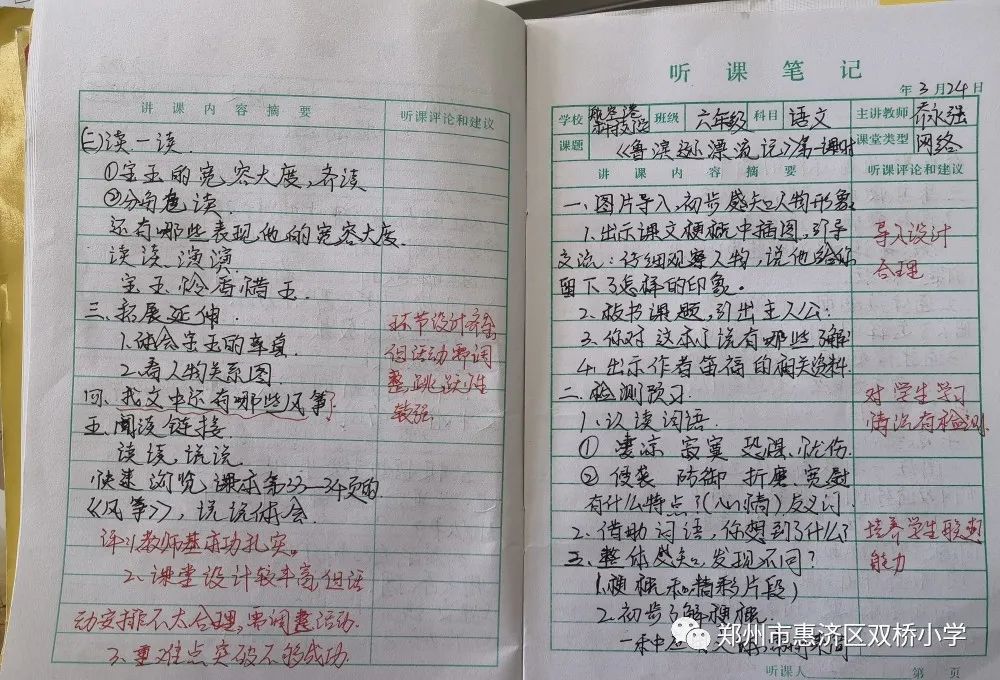 讲 课 内 容 摘 要 听课评论和建议
(三)读一读.
①宝玉的宽容大度,齐读
②分角色读.
还有哪些表现他的宽容大度.
读读、演演
宝玉 怜香惜玉.
三、拓展延伸.
1.体会宝玉的率真.
2.看人物关系图.
四、找文中还有哪些风筝?
五、阅读链接
读读,说说.
快速浏览课本第33—34页的
《风筝》,说说体会.
环节设计齐全
但活动需调
整,跳跃性
较强
评:1.教师基本功扎实。
2、课堂设计较丰富,但活
动安排不太合理,需调整活动.
3、重难点突破不够成功.
听 课 笔 记
年 3 月 24 日
学校 班级 六年级 科目 语文 主讲教师 乔永强
课题 《鲁滨逊漂流记》第一课时 课堂类型 网络
讲 课 内 容 摘 要 听课评论和建议
一、图片导入,初步感知人物形象
1.出示课文梗概中插图,引导
交流:仔细观察人物,说他给你
留下了怎样的印象。
2、板书课题,引出主人公:
3.你对这本小说有哪些了解
4.出示作者笛福的相关资料
导入设计
合理
二、检测预习.
1.认读词语.
① 凄凉 寂寞 恐惧、忧伤
② 侵袭 防御 折磨 宽慰
有什么特点?(心情)反义词
2.借助词语,你想到了什么?
对学生学习
情况有检测
培养学生联想
能力
三、整体感知,发现不同?
1.梗概和精彩片段)
2.初步了解梗概
郑州市惠济区双桥小学
听课人 第 页